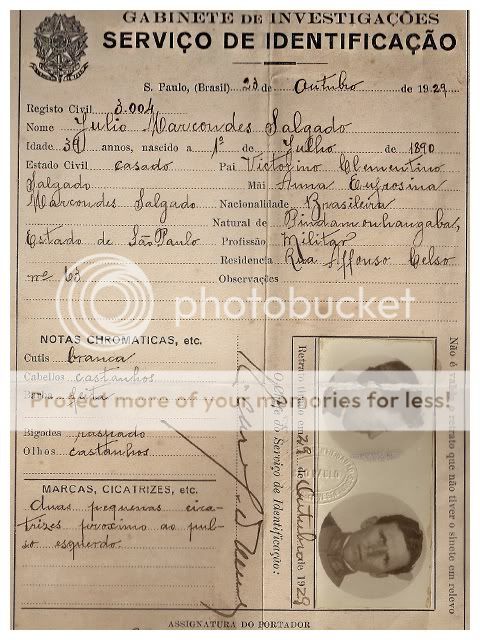 GABINETE DE INVESTIGAÇÕES
SERVIÇO DE IDENTIFICAÇÃO
S. Paulo, (Brasil) 23 de Outubro de 1929
Registo Civil 3.004
Nome Julio Marcondes Salgado
Idade 39 annos, nascido a 1º de Julho de 1890
Estado Civil casado Pai Victorino Clementino
Salgado Mãi Anna Eufrosina
Marcondes Salgado Nacionalidade Brasileira
Natural de Pindamonhangaba,
Estado de São Paulo Profissão Militar
Residencia Rua Affonso Celso
nº 63 Observações
photobucket
NOTAS CHROMATICAS, etc.
Cutis branca
Cabellos castanhos
Barba feita
Bigodes raspado
Olhos castanhos
MARCAS, CICATRIZES, etc.
duas pequenas cica-
trizes proximo ao pul-
so esquerdo.
O Chefe do Serviço de Identificação:
Retrato tirado em 29 de Outubro de 1929
Não é valido o retrato que não tiver o sinete em relevo
Protect more of your memories for less!
ASSIGNATURA DO PORTADOR